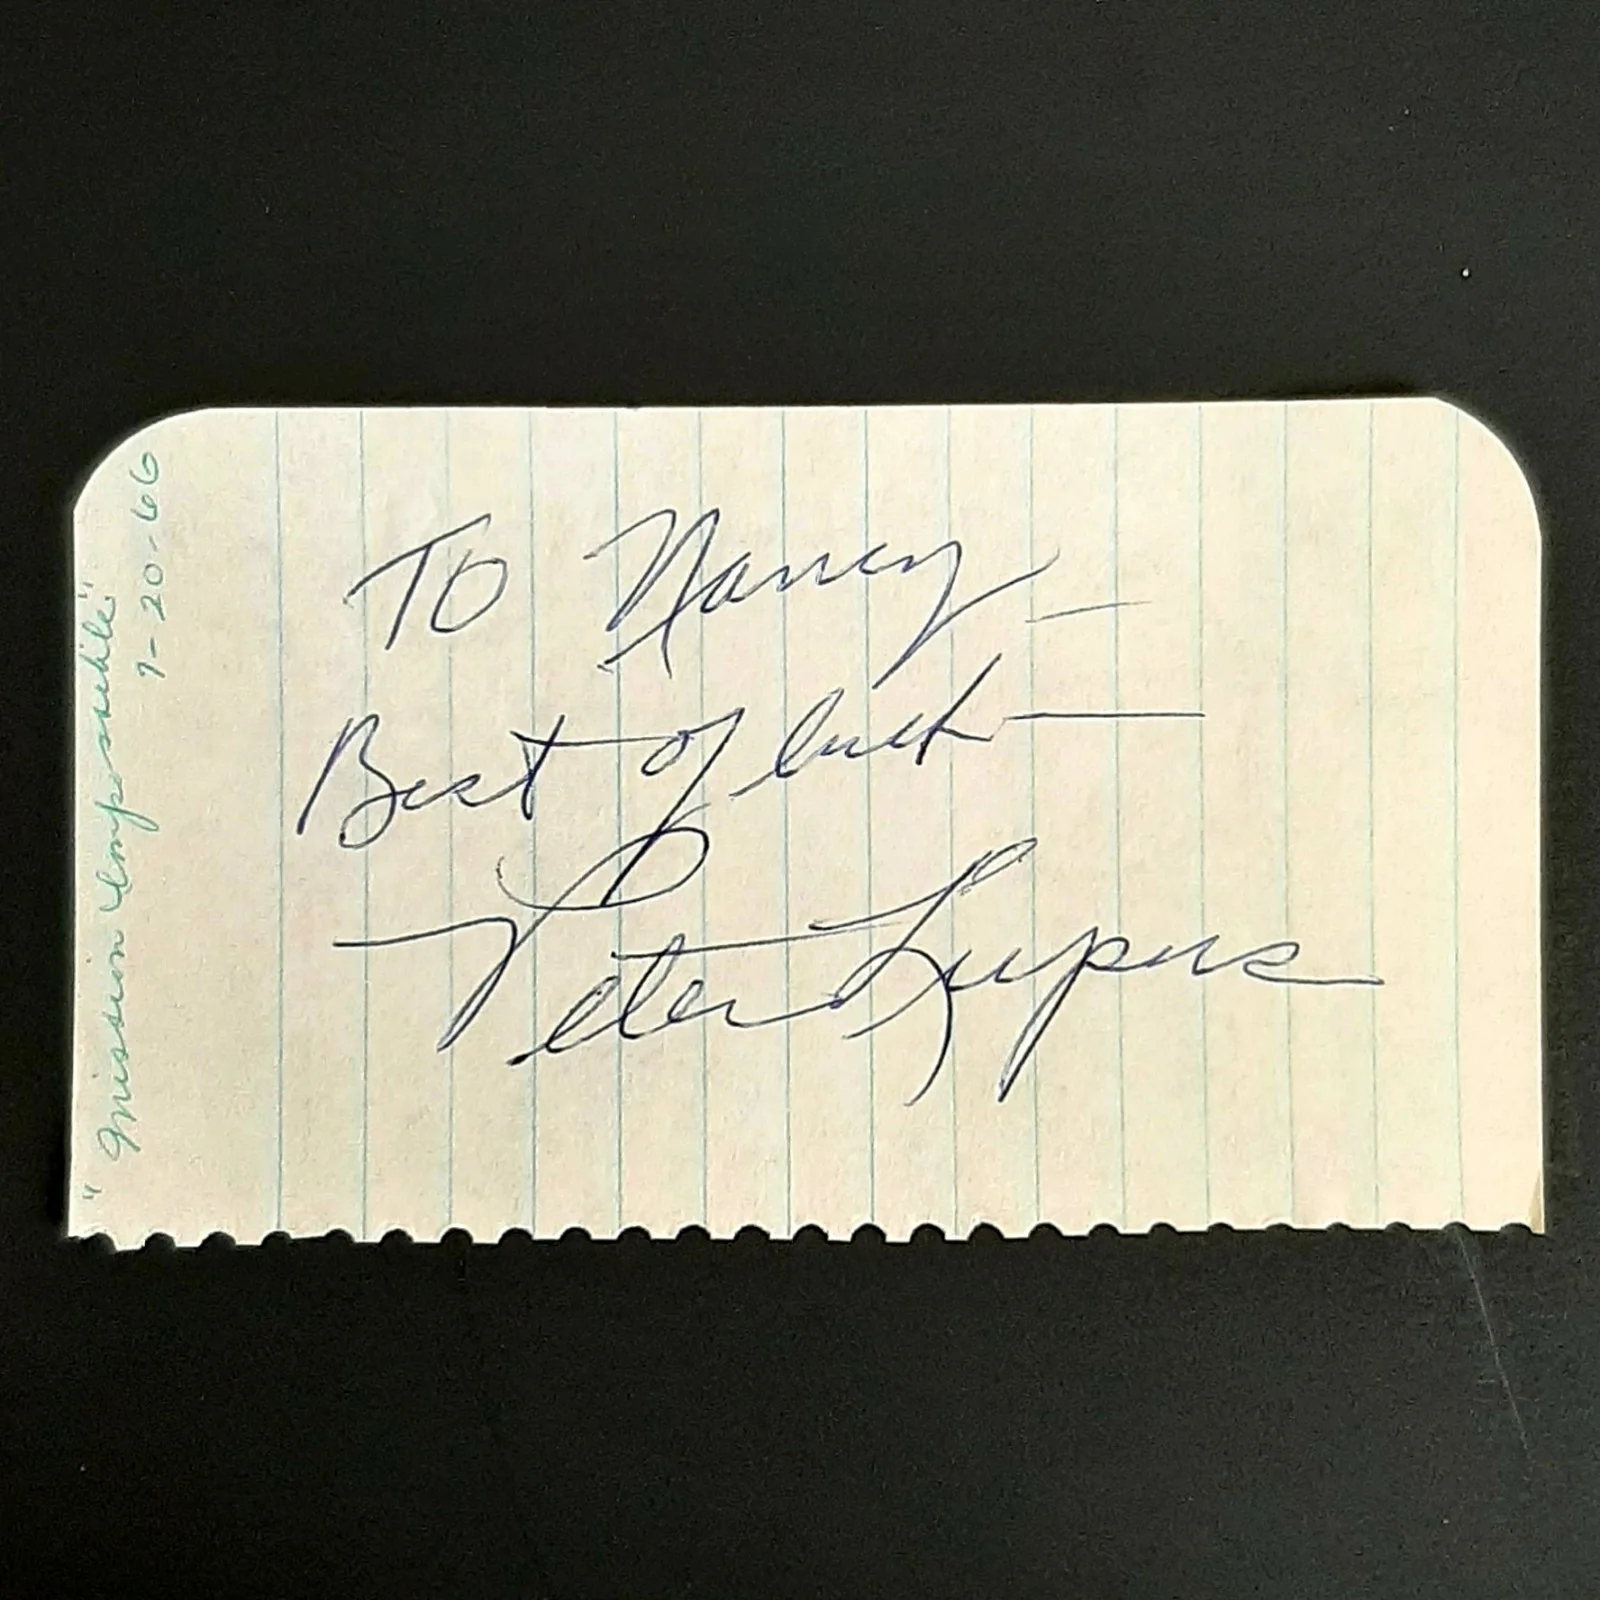 To Nancy —
Best of luck —
Peter Lupus
"Mission Impossible"
9-20-66